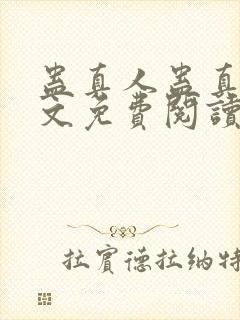 蛊真人蛊真
文免費閱讀
拉賓德拉納特